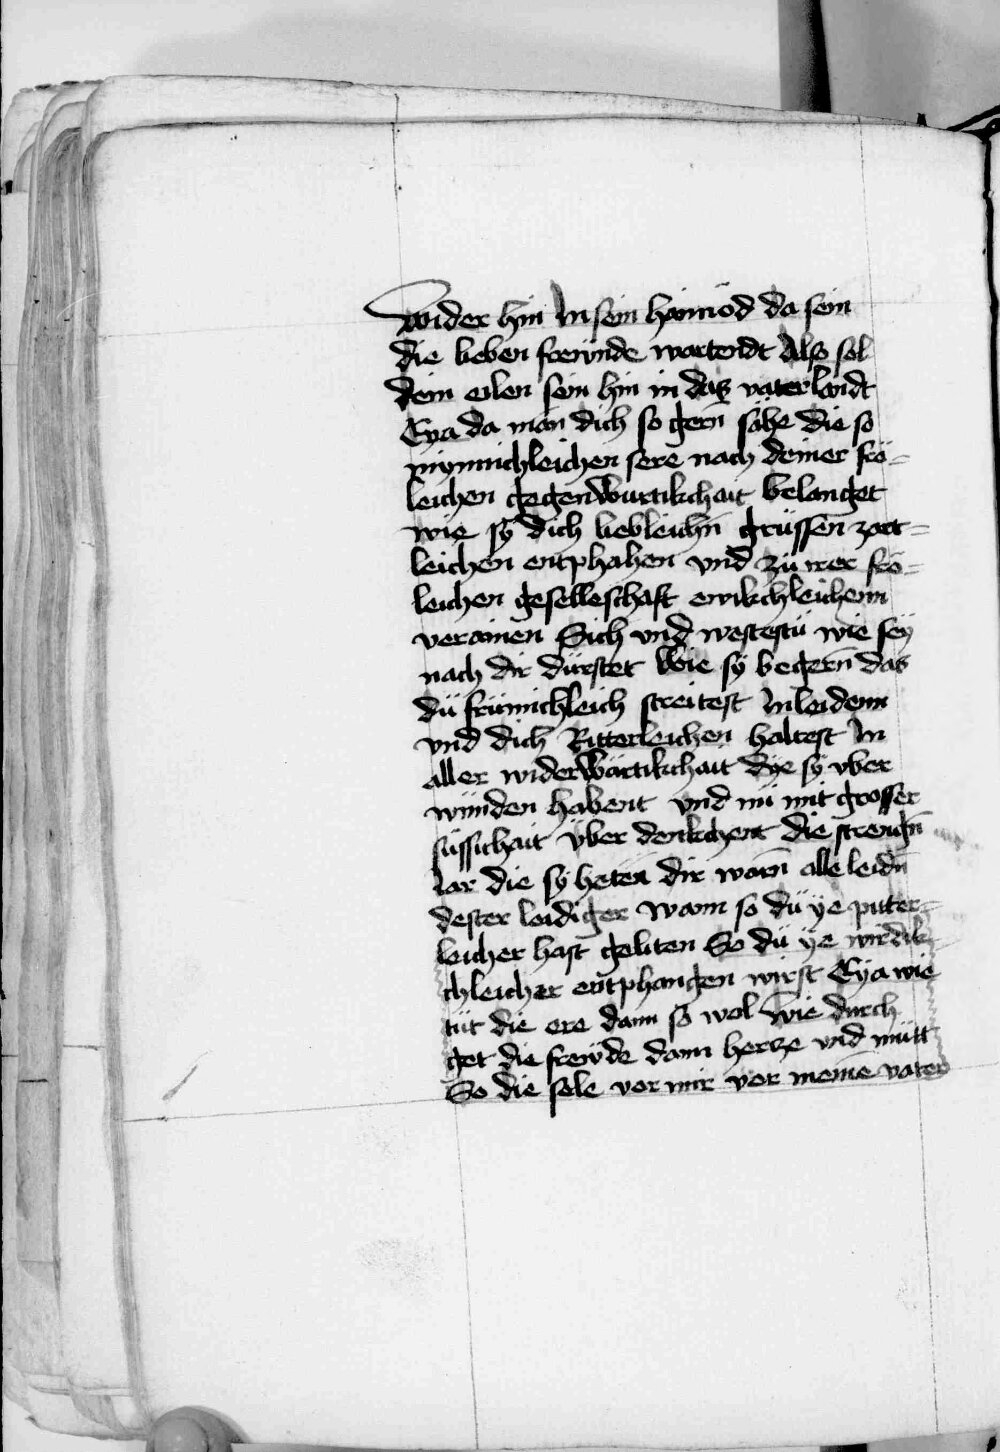 Wider hin In sein haimod da sein
die lieben freunde wartendt Also sol
dein eilen sein hin in das vaterlandt
Eya da man dich so gern sähe die so
mynnichleichen sere nach deiner frö-
leichen gegenwürtikchait belanget
wie sÿ dich liebleichn̄ grüssen zart-
leichen entphahen vnd zü irer frö-
leichen geselleschaft ewikchleichenn
verainen Sich vnd westestü wie seÿ
nach dir dürstet Wie sÿ begern̄ das
dü früminchleich streitest In leidenn
vnd dich Ritterleichen haltest In
aller widerwärtikchait dÿe sÿ vber
wünden habent vnd nü mit grosser
süssichait über denkchent die strengn̄
Iar die sÿ heten dir warn̄ alle leidn̄
dester leidiger wann so dü ÿe pitter-
leicher hast geliten So dü ÿe wirdik-
chleicher entphangen wirst Eÿa wie
tüt die ere dann so wol wie durch
get die freẅde dann hercze vnd mütt
So die sele vor mir vor meinē vater